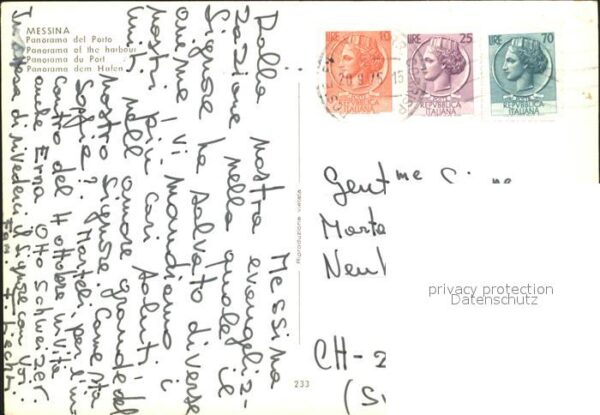 MESSINA
Panorama del Porto
Panorama of the harbour
Panorama du Port
Panorama dem Hafen
LIRE 10
LIRE 25
LIRE 70
POSTE
REPVBBLICA
ITALIANA
POSTE
REPVBBLICA
ITALIANA
POSTE
REPVBBLICA
ITALIANA
Messina
Dalla nostra evangeliz-
zazione nella quale il
Signore ha salvato diverse
anime vi mandiamo i
nostri più cari saluti
uniti nell'amore grande del
nostro Signore. Come sta
Seppie? Martedì, per l'in
contro del 4 ottobre invita
anche Erna, Otto Schweizer.
di rivederci il Signore con voi.
Fam.
Riproduzione vietata
233
Gent me
Marta
CH-2
privacy protection
Datenschutz